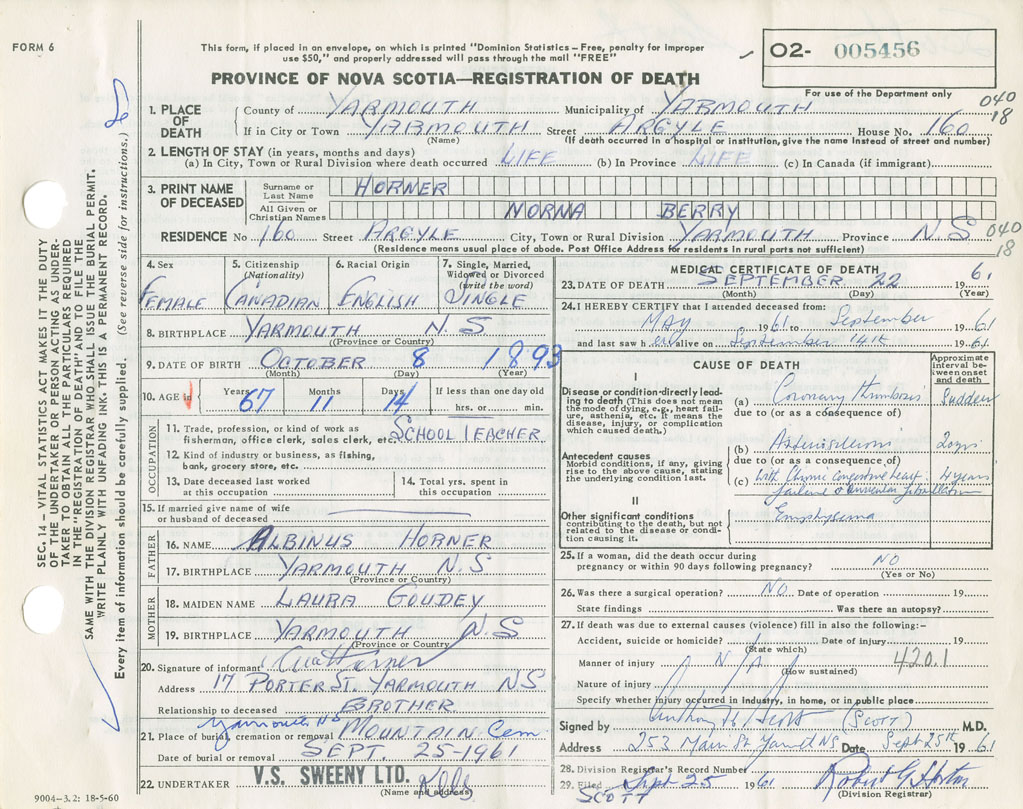 FORM 6
This form, if placed in an envelope, on which is printed "Dominion Statistics – Free, penalty for improper
use $50," and properly addressed will pass through the mail "FREE"
PROVINCE OF NOVA SCOTIA—REGISTRATION OF DEATH
O2- 005456
For use of the Department only
040
18
1. PLACE OF DEATH
County of YARMOUTH Municipality of YARMOUTH
If in City or Town YARMOUTH Street ARGYLE House No. 160
(Name) (If death occurred in a hospital or institution, give the name instead of street and number)
2. LENGTH OF STAY (in years, months and days)
(a) In City, Town or Rural Division where death occurred LIFE (b) In Province LIFE (c) In Canada (if immigrant)
3. PRINT NAME OF DECEASED
Surname or Last Name HORNER
All Given or Christian Names NORMA BERRY
RESIDENCE No 160 Street ARGYLE City, Town or Rural Division YARMOUTH Province N S
040
18
(Residence means usual place of abode. Post Office Address for residents in rural parts not sufficient)
4. Sex
FEMALE
5. Citizenship
(Nationality)
CANADIAN
6. Racial Origin
ENGLISH
7. Single, Married,
Widowed or Divorced
(write the word)
SINGLE
8. BIRTHPLACE YARMOUTH N. S
(Province or Country)
9. DATE OF BIRTH OCTOBER 8 1893
(Month) (Day) (Year)
10. AGE in Years 67 Months 11 Days 14 If less than one day old
hrs. or min.
OCCUPATION
11. Trade, profession, or kind of work as
fisherman, office clerk, sales clerk, etc. SCHOOL TEACHER
12. Kind of industry or business, as fishing,
bank, grocery store, etc.
13. Date deceased last worked
at this occupation
14. Total yrs. spent in
this occupation
15. If married give name of wife
or husband of deceased
FATHER
16. NAME ALBINUS HORNER
17. BIRTHPLACE YARMOUTH N. S
(Province or Country)
MOTHER
18. MAIDEN NAME LAURA GOUDEY
19. BIRTHPLACE YARMOUTH N. S
(Province or Country)
20. Signature of informant
Address 17 PORTER ST. YARMOUTH NS
Relationship to deceased BROTHER
Yarmouth NS
21. Place of burial, cremation or removal MOUNTAIN Cem
Date of burial or removal SEPT. 25-1961
22. UNDERTAKER V.S. SWEENY LTD.
(Name and address)
9004-3.2: 18-5-60
MEDICAL CERTIFICATE OF DEATH
23. DATE OF DEATH SEPTEMBER 22 19 61
(Month) (Day) (Year)
24. I HEREBY CERTIFY that I attended deceased from:
MAY 1961 to September 1961
and last saw h er alive on September 14th 1961
CAUSE OF DEATH
Approximate
interval between
onset
and death
I
Disease or condition directly leading
to death (This does not mean
the mode of dying, e.g., heart failure,
asthenia, etc. It means the
disease, injury, or complication
which caused death.)
(a) Coronary thrombosis Sudden
due to (or as a consequence of)
Antecedent causes
Morbid conditions, if any, giving
rise to the above cause, stating
the underlying condition last.
(b)
due to (or as a consequence of)
(c) with Chronic congestive heart 4 years
failure &
II
Other significant conditions
contributing to the death, but not
related to the disease or condition
causing it.
Emphysema
25. If a woman, did the death occur during
pregnancy or within 90 days following pregnancy? NO
(Yes or No)
26. Was there a surgical operation? NO Date of operation 19
State findings Was there an autopsy?
27. If death was due to external causes (violence) fill in also the following:-
Accident, suicide or homicide? Date of injury 19
(State which)
Manner of injury N/A 420.1
(How sustained)
Nature of injury
Specify whether injury occurred in Industry, in home, or in public place
Signed by Anthony Scott (SCOTT) M.D.
Address 253 Main St NS Date Sept 25th 1961
28. Division Registrar's Record Number
29. Filed Sept 25 1961 Robert G Horton
SCOTT (Division Registrar)
SEC. 14 – VITAL STATISTICS ACT MAKES IT THE DUTY
OF THE UNDERTAKER OR PERSON ACTING AS UNDERTAKER
TO OBTAIN ALL THE PARTICULARS REQUIRED
IN THE "REGISTRATION OF DEATH" AND TO FILE THE
SAME WITH THE DIVISION REGISTRAR WHO SHALL ISSUE THE BURIAL PERMIT.
WRITE PLAINLY WITH UNFADING INK. THIS IS A PERMANENT RECORD.
Every item of information should be carefully supplied. (See reverse side for instructions.)